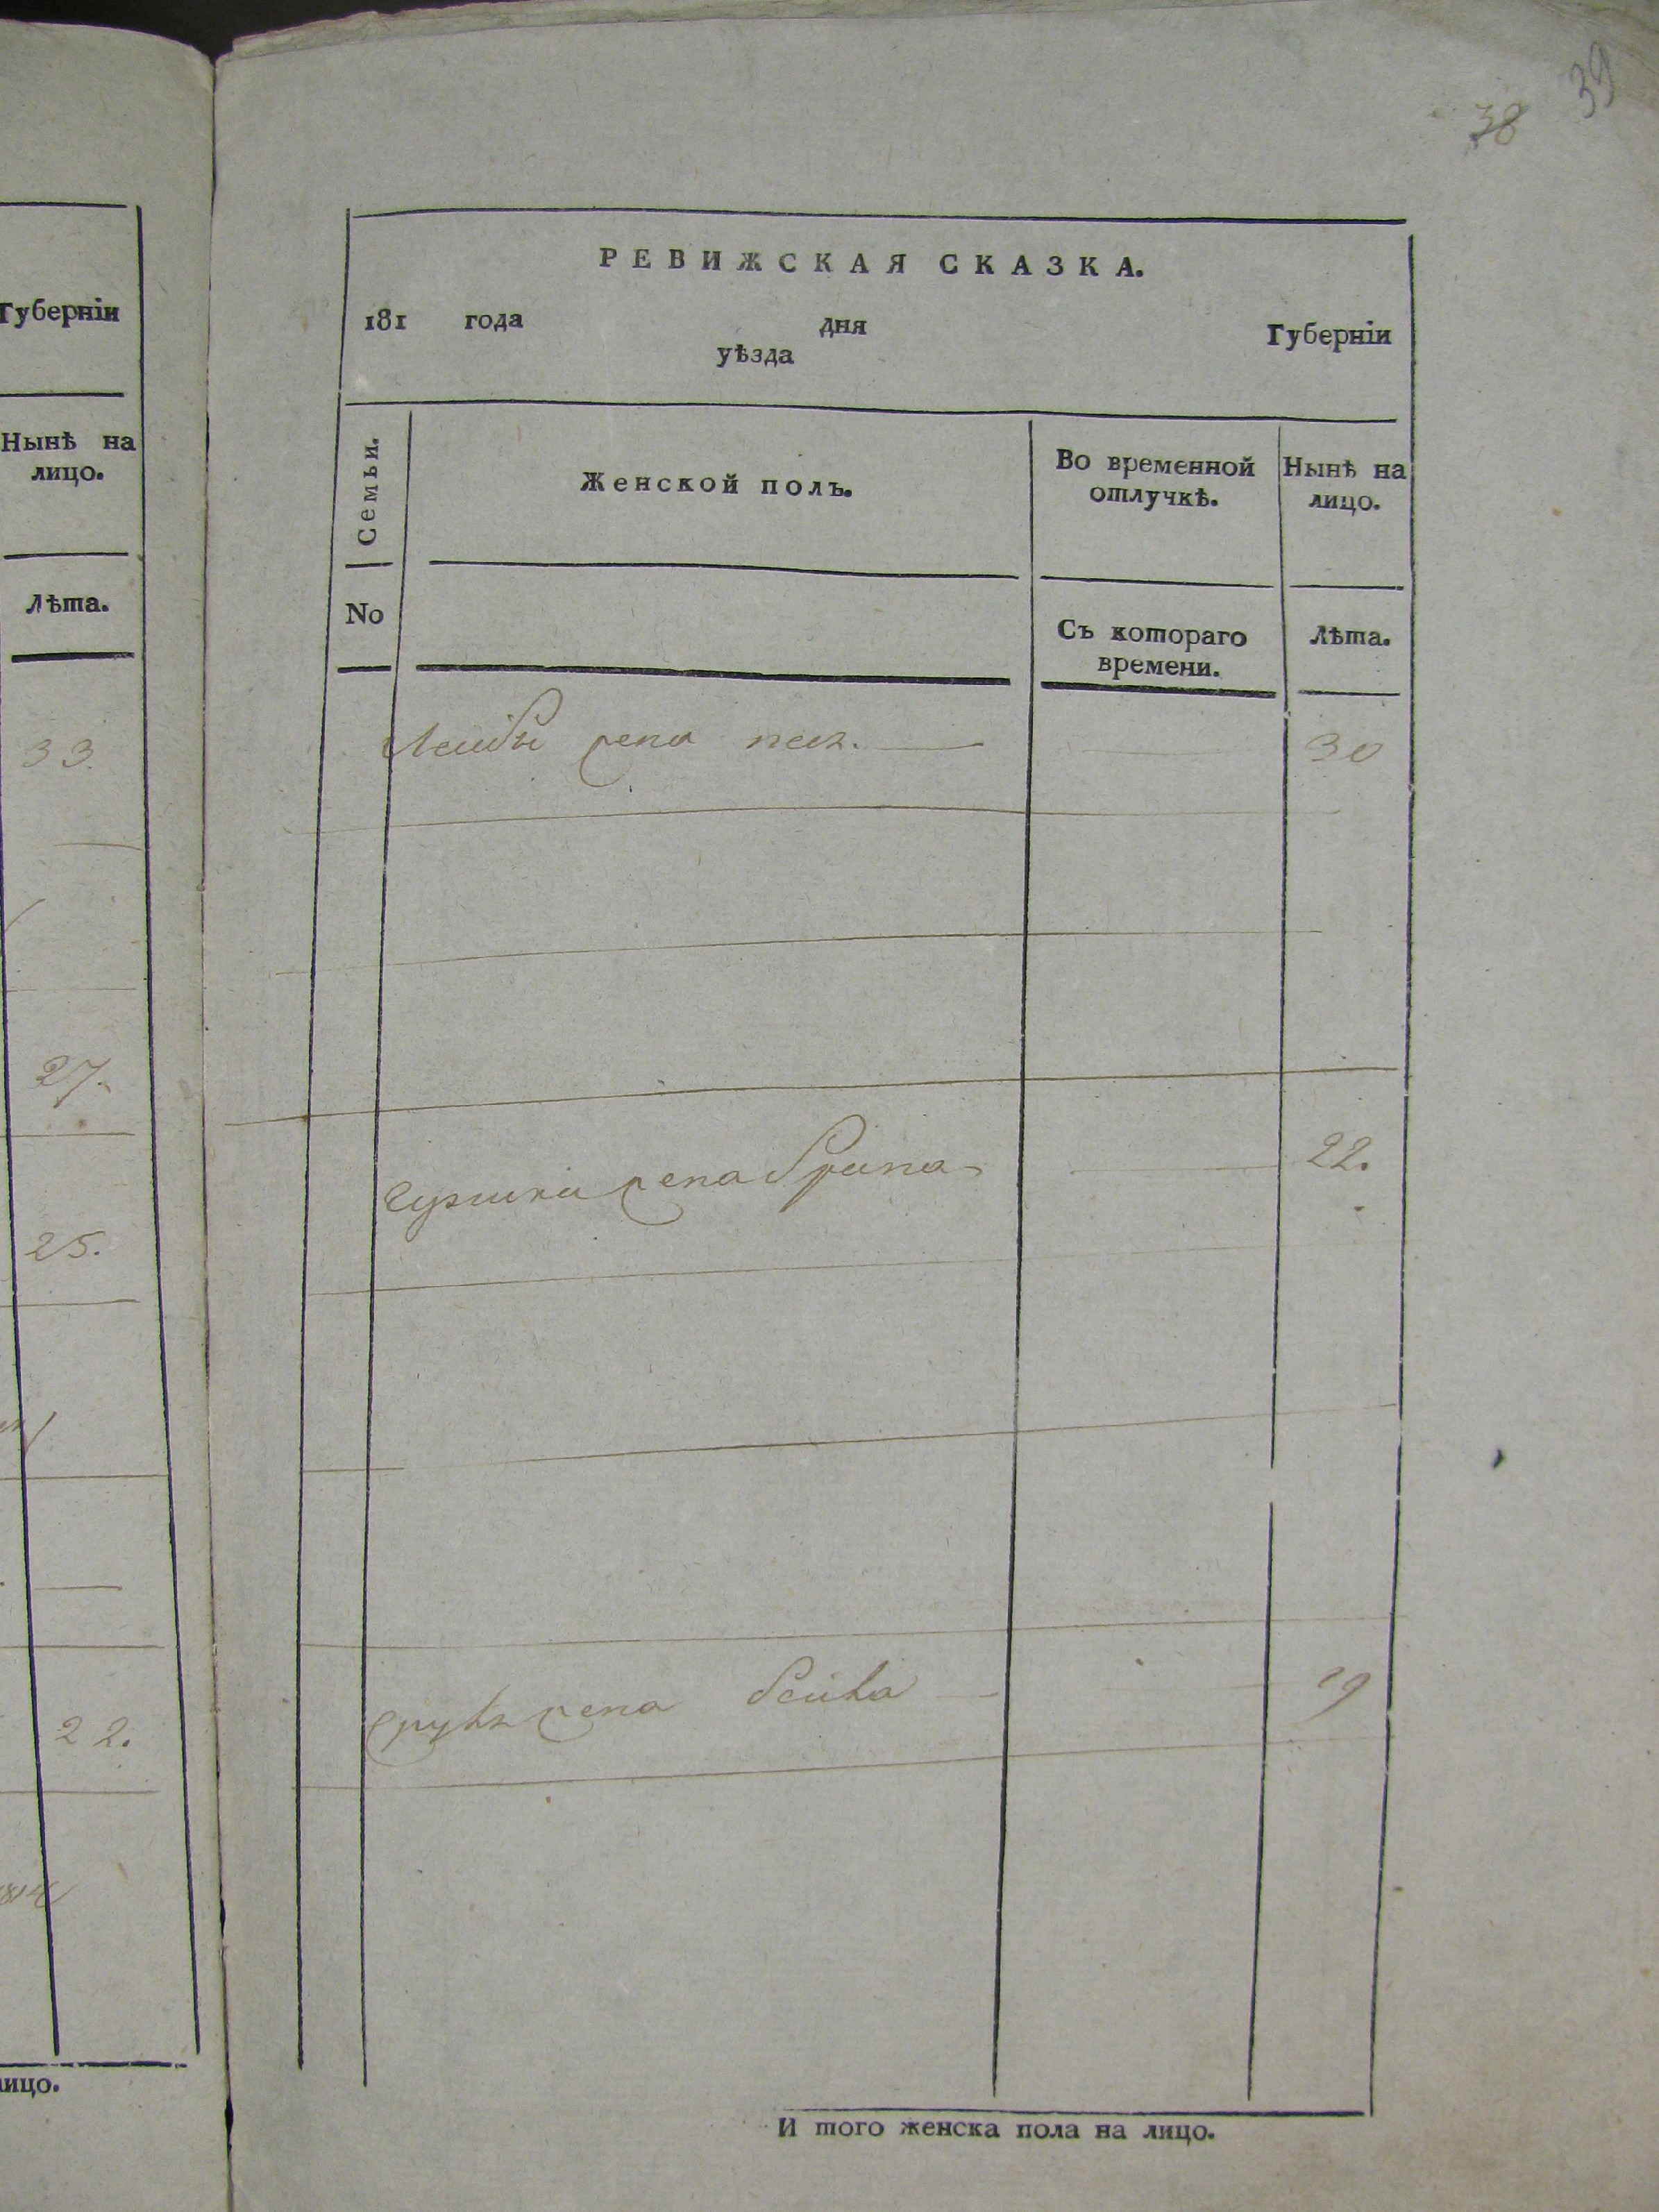 39
38
Губерніи
Нынѣ на
лицо.
Лѣта.
33.
27.
25.
22.
лицо.
РЕВИЖСКАЯ СКАЗКА.
181 года дня Губерніи
уѣзда
Семьи.
Женской полъ.
Во временной
отлучкѣ.
Нынѣ на
лицо.
No
Съ котораго
времени.
Лѣта.
Лейбы жена 30
жена 22.
жена Бейла 19
И того женска пола на лицо.